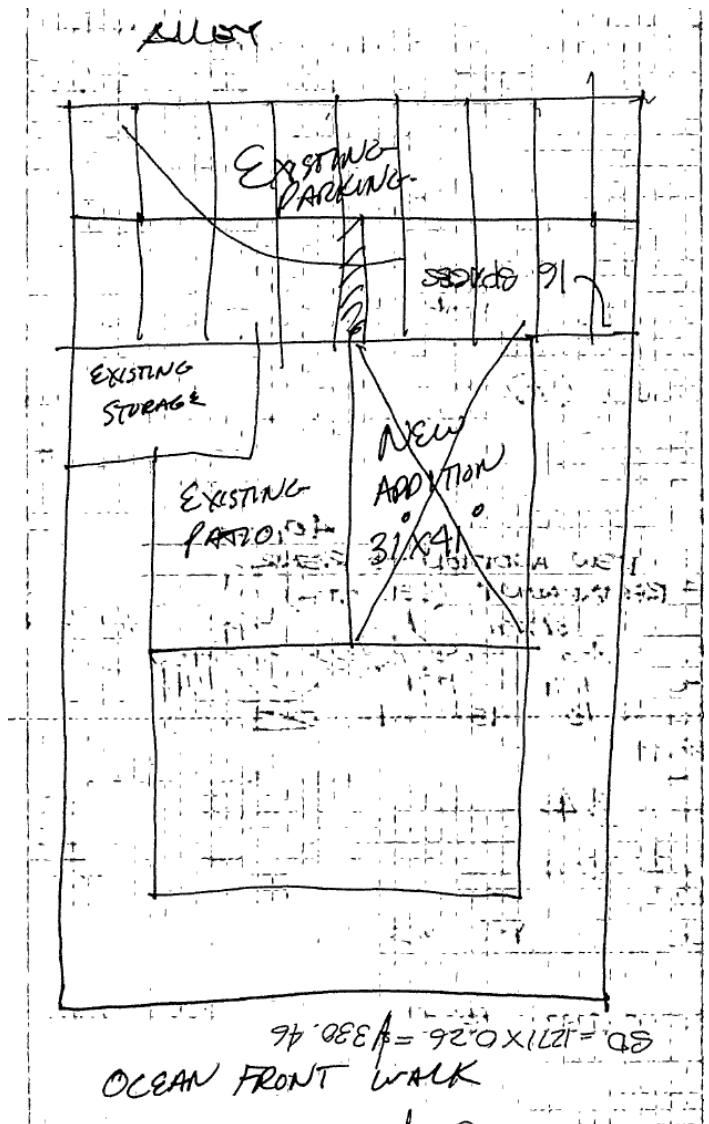 ALLEY
EXISTING
PARKING
16 SPACES
EXISTING
STORAGE
NEW
ADDITION
31° X 41°
EXISTING
PATIO
SD = 1271 X 0.26 = $330.46
OCEAN FRONT WALK